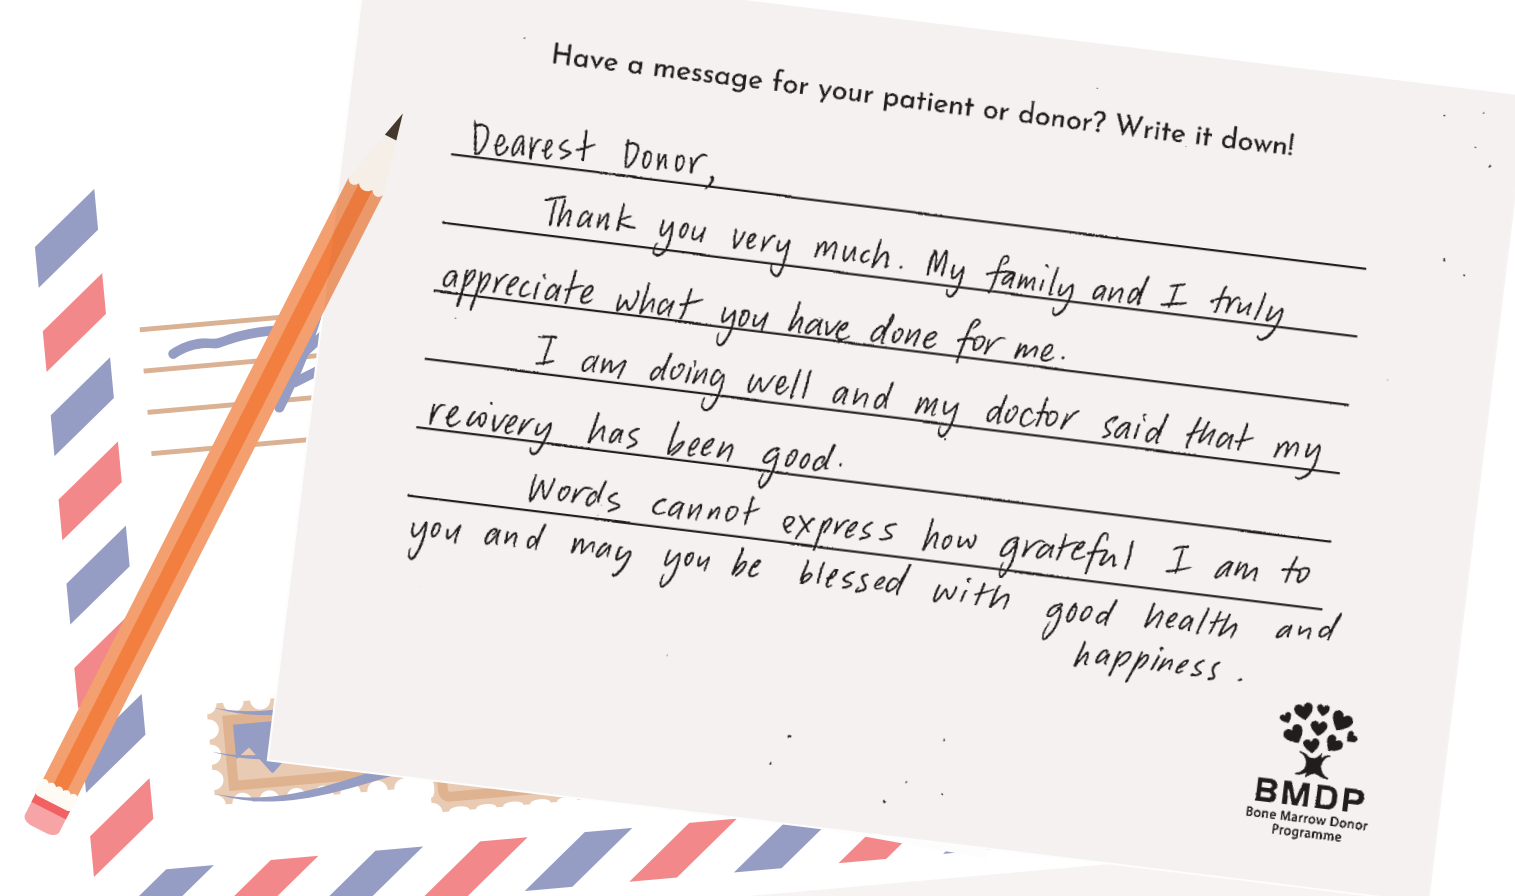 Have a message for your patient or donor? Write it down!
Dearest Donor,
Thank you very much. My family and I truly
appreciate what you have done for me.
I am doing well and my doctor said that my
recovery has been good.
Words cannot express how grateful I am to
you and may you be blessed with good health and
happiness.
BMDP
Bone Marrow Donor
Programme